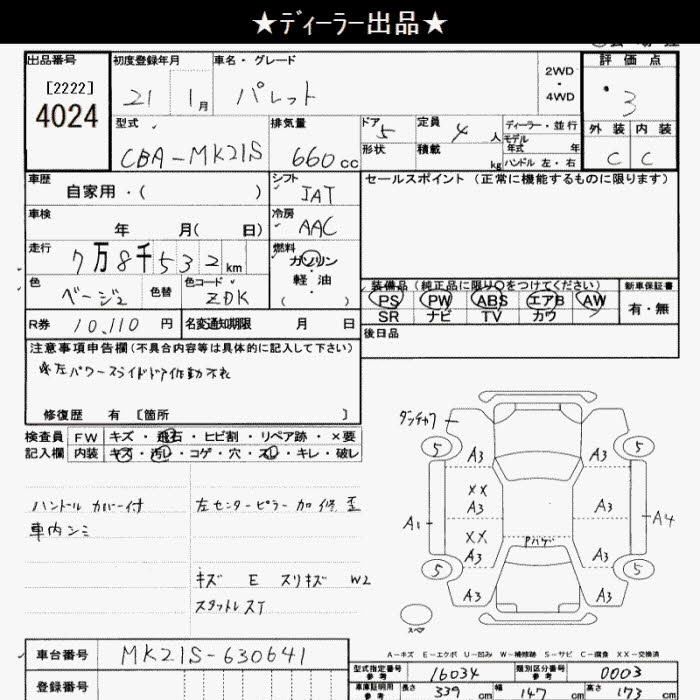 ★ディーラー出品★
出品番号 初度登録年月 車名・グレード 2WD・4WD 評価点
[2222]
4024
21 1月 パレット 3
型式 排気量 ドア 5 定員 4人 ディーラー・並行 外装 内装
CBA-MK21S 660cc 形状 積載 kg モデル年式 年 C C
ハンドル 左・右
車歴 自家用・( ) シフト IAT セールスポイント (正常に機能するものに限ります)
車検 年 月( 日) 冷房 AAC
走行 7万8千532km 燃料 ガソリン・軽油 ( )
色 ベージュ 色替 色コード ZDK
装備品(純正品に限り○をつけてください) 新車保証書
PS PW ABS エアB AW 有・無
SR ナビ TV カワ
R券 10,110円 名変通知期限 月 日 後日品
注意事項申告欄(不具合内容等は具体的に記入して下さい)
※左パワースライドドア作動不良
修復歴 有 [箇所 ]
検査員 FW キズ・飛石・ヒビ割・リペア跡・×要
記入欄 内装 キズ・汚し・コゲ・穴・スレ・キレ・破レ
ハンドルカバー付 左センターピラー加修歪
車内シミ
キズ E スリキズ W2
スタットレスT
5 A3 A3 5
XX
A3 A3
A1 A4
XX Pハゲ
A3 A3
5 A3 A3 5
スペア
A-キズ E-エクボ U-凹み W-補修跡 S-サビ C-腐食 XX-交換済
車台番号 MK21S-630641
型式指定番号 参考 16034 類別区分番号 参考 0003
登録番号 車庫証明用 参考 長さ 339cm 幅 147cm 高さ 173cm